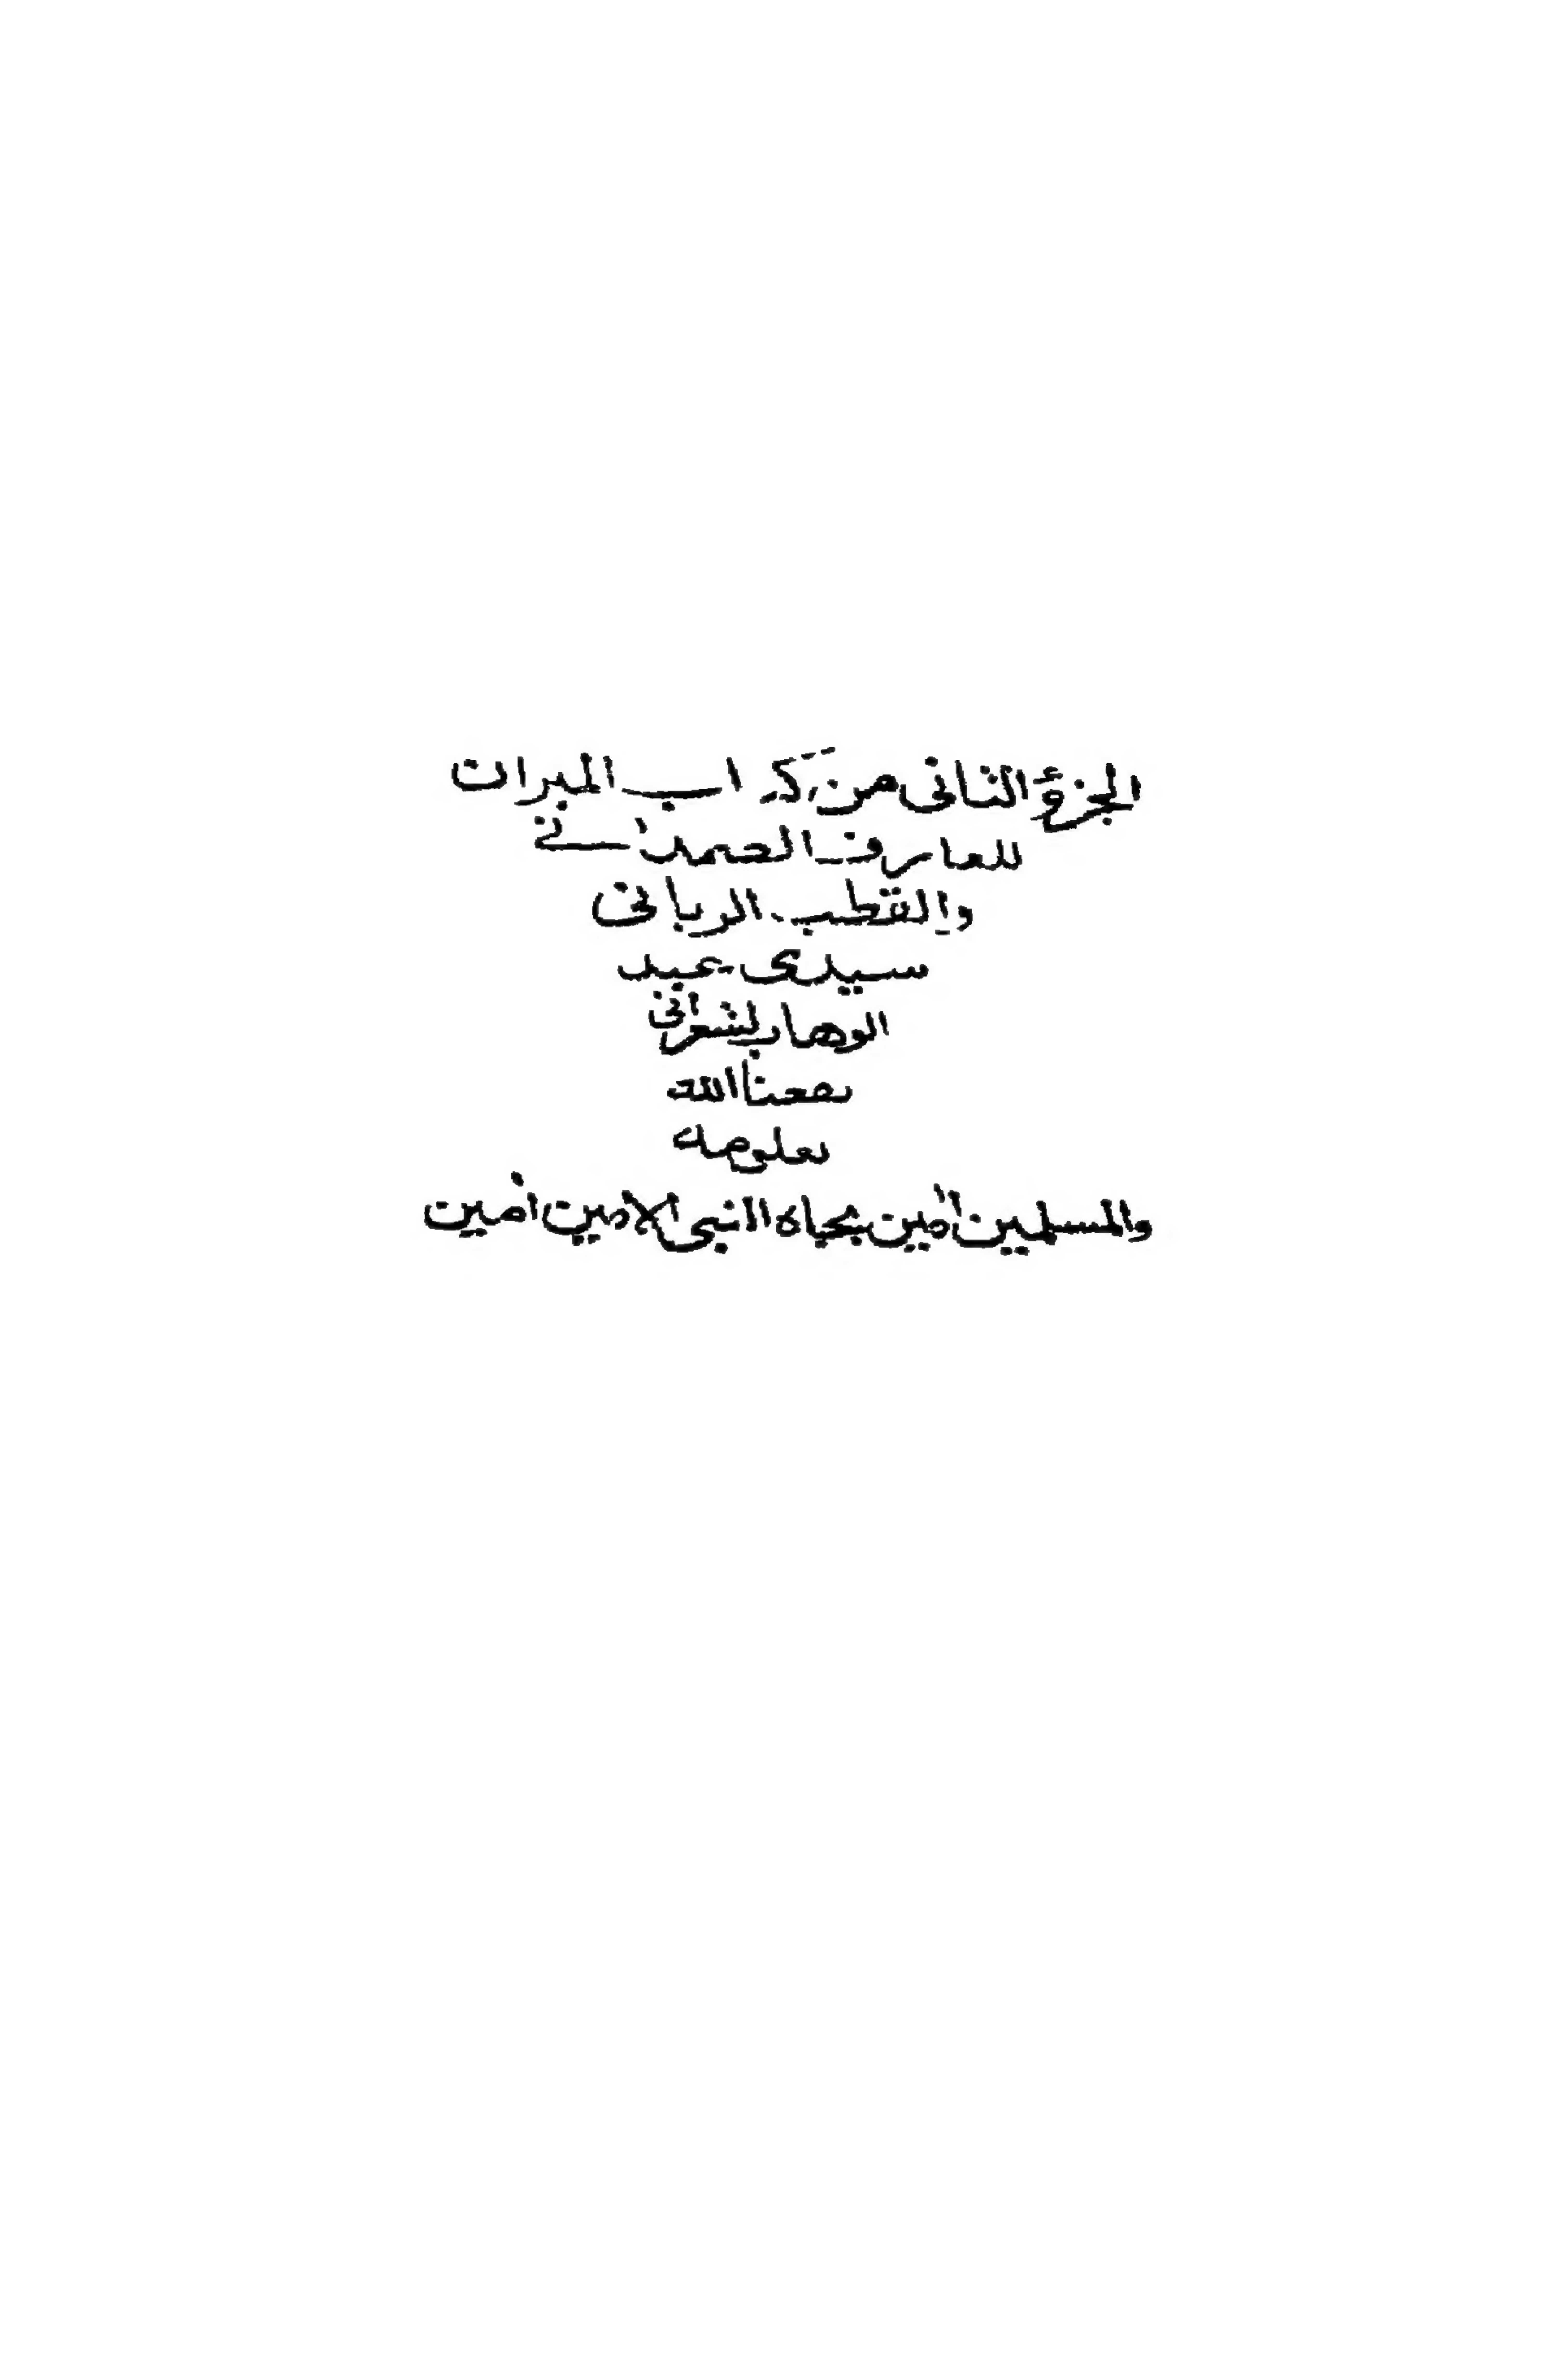 الجزؤ الثانى من كتاب الميزان
للعارف الصمدانى
والقطب الربانى
سيدى عبد
الوهاب الشعرانى
نفعنا الله
بعلومه
والمسلمين امين بجاه النبى الامين امين